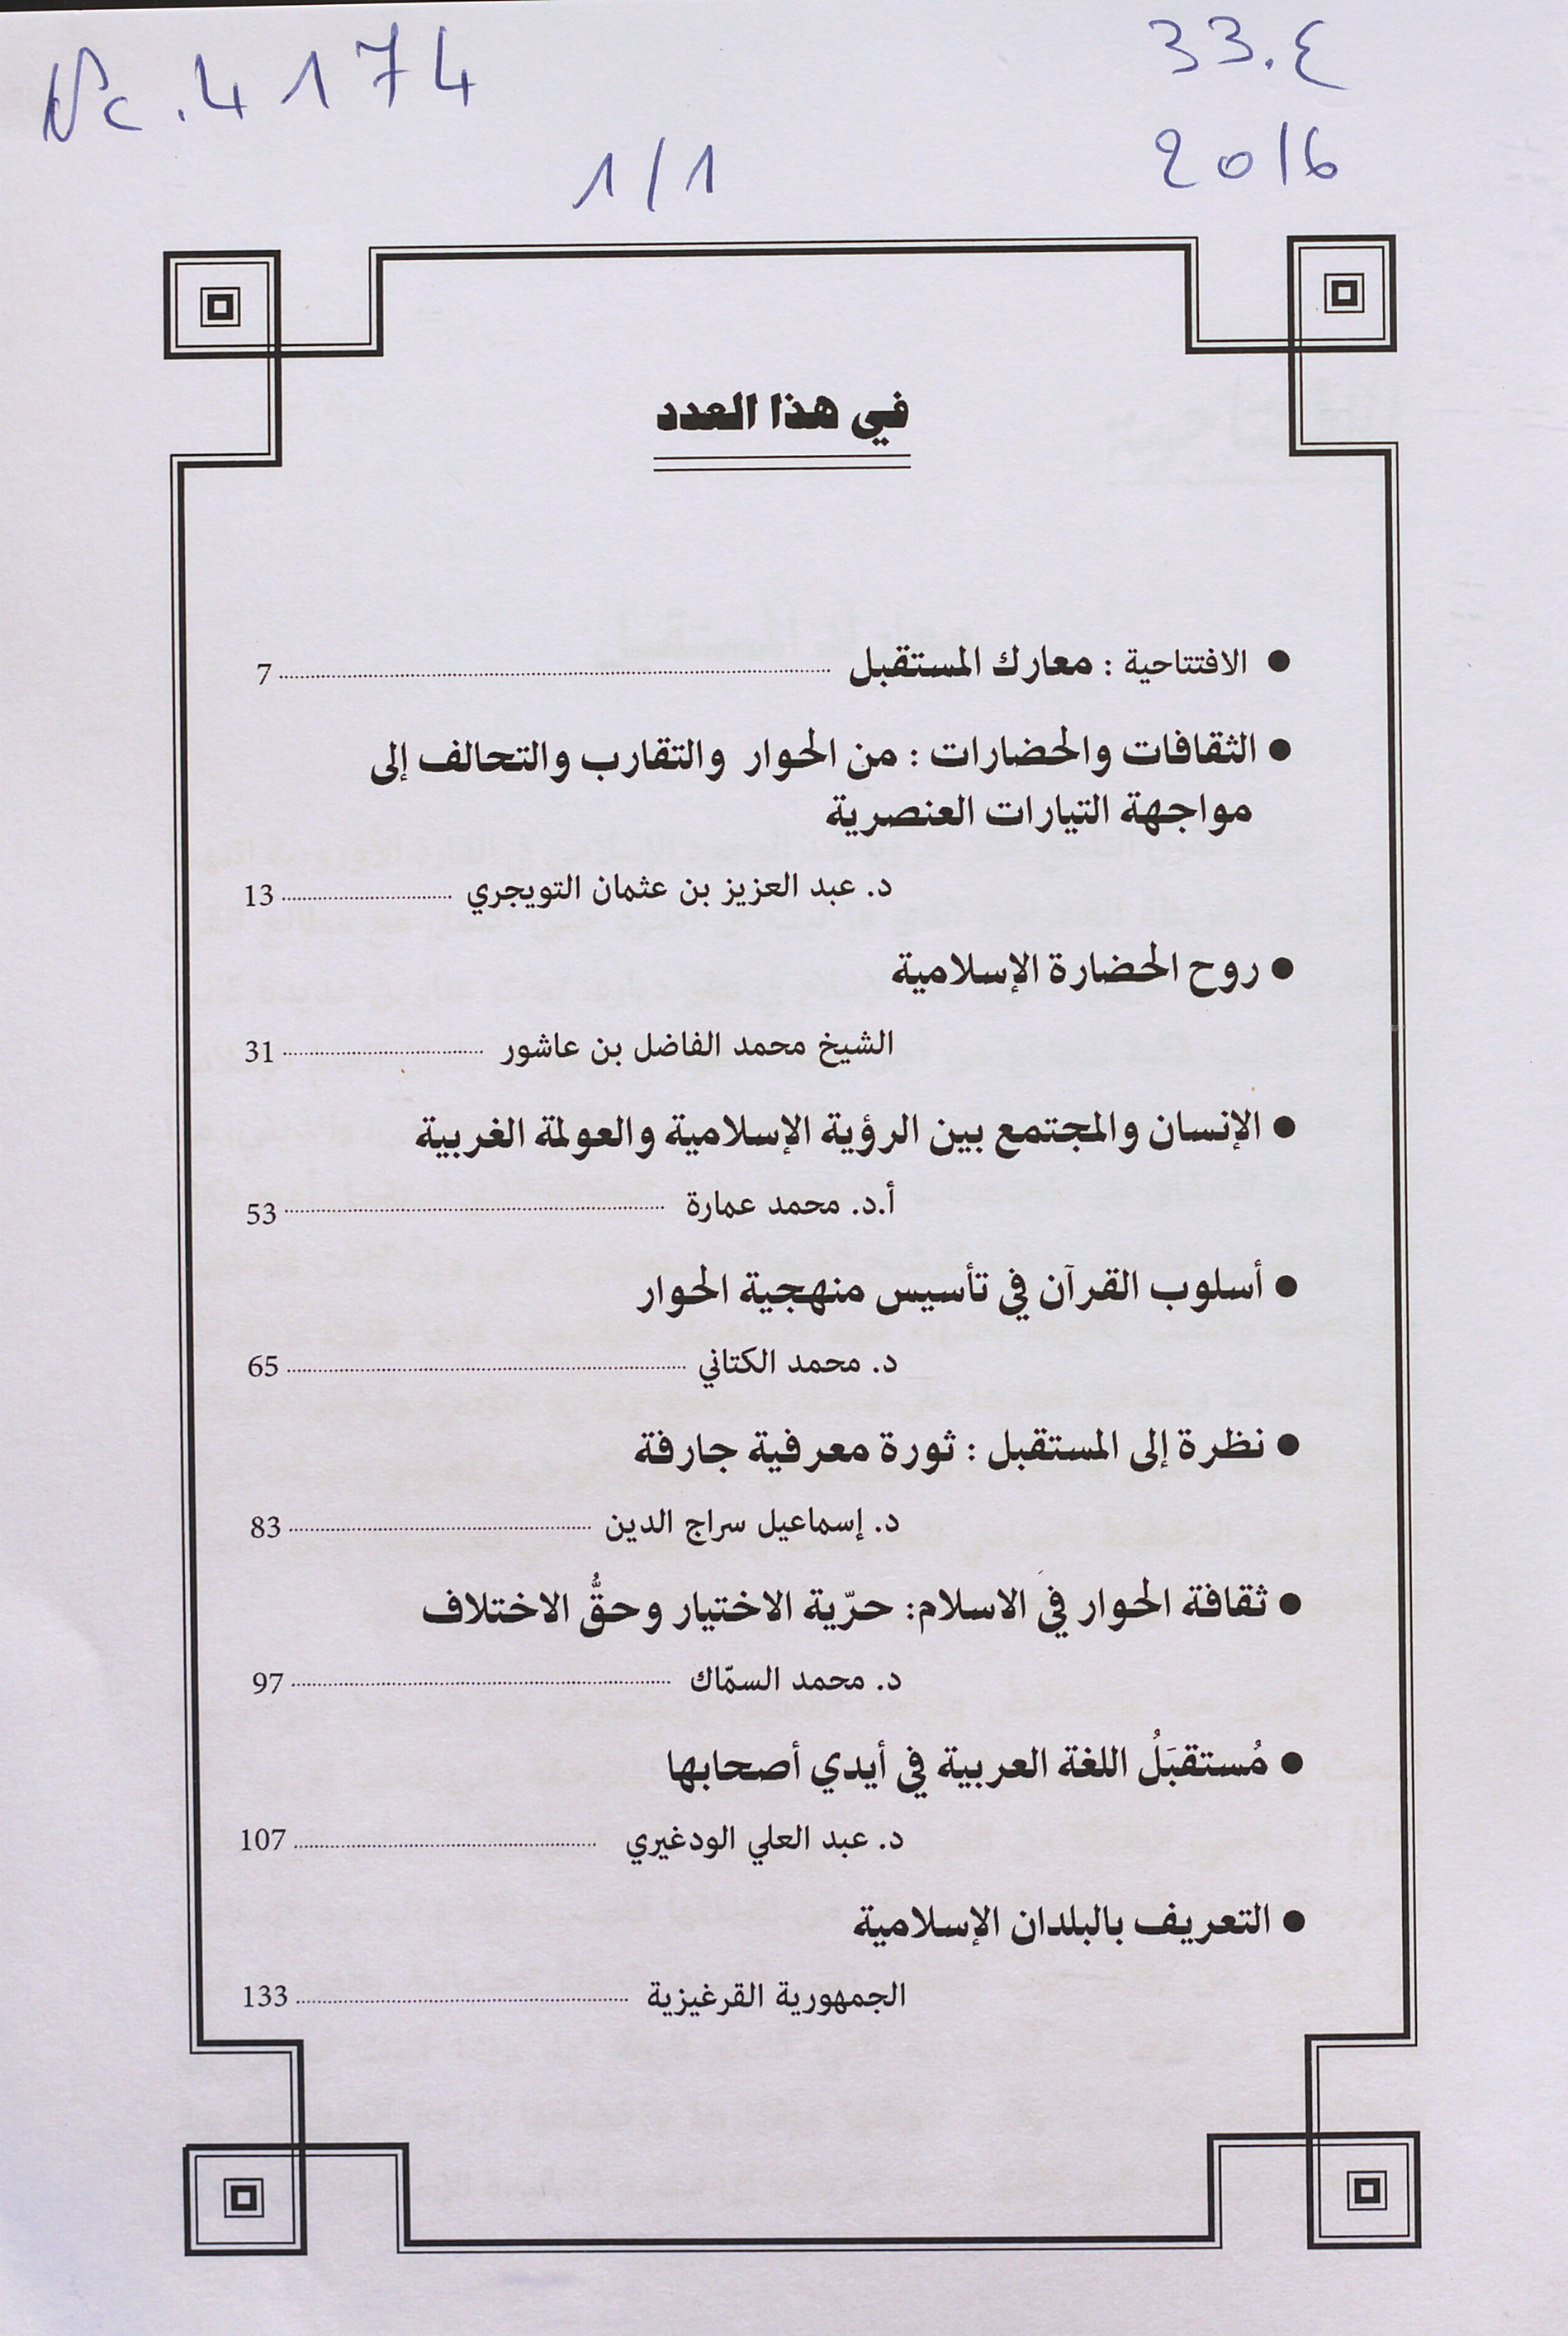 Nc. 4174
33.ع
1/1
2016
في هذا العدد
● الافتتاحية : معارك المستقبل 7
● الثقافات والحضارات : من الحوار والتقارب والتحالف إلى
مواجهة التيارات العنصرية
د. عبد العزيز بن عثمان التويجري 13
● روح الحضارة الإسلامية
الشيخ محمد الفاضل بن عاشور 31
● الإنسان والمجتمع بين الرؤية الإسلامية والعولمة الغربية
أ.د. محمد عمارة 53
● أسلوب القرآن في تأسيس منهجية الحوار
د. محمد الكتاني 65
● نظرة إلى المستقبل : ثورة معرفية جارفة
د. إسماعيل سراج الدين 83
● ثقافة الحوار في الاسلام: حرّية الاختيار وحقُّ الاختلاف
د. محمد السمّاك 97
● مُستقبَلُ اللغة العربية في أيدي أصحابها
د. عبد العلي الودغيري 107
● التعريف بالبلدان الإسلامية
الجمهورية القرغيزية 133